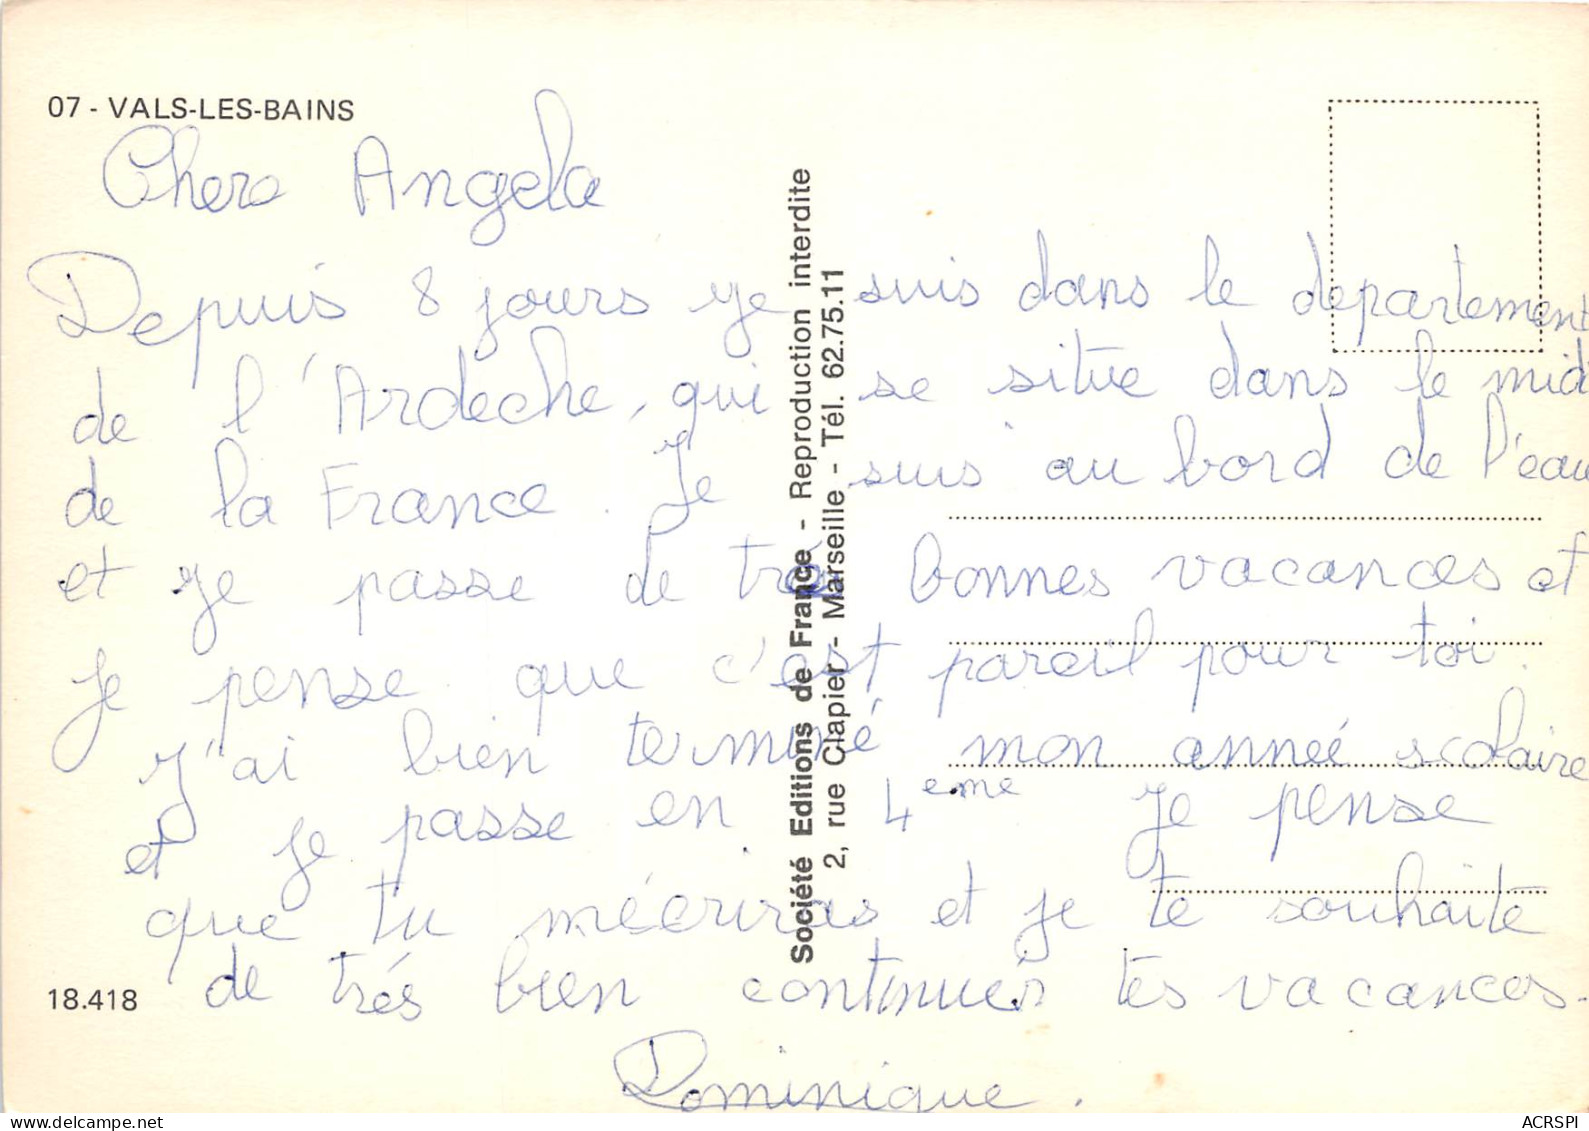 07 - VALS-LES-BAINS
Chere Angela
Depuis 8 jours je suis dans le departement
de l'Ardeche, qui se situe dans le midi
de la France. Je suis au bord de l'eau
et je passe de tres bonnes vacances et
je pense que c'est pareil pour toi.
J'ai bien terminé mon année scolaire
et je passe en 4eme Je pense
que tu mécriras et je te souhaite
de trés bien continuér tes vacances.
Dominique.
18.418
Société Editions de France - Reproduction interdite
2, rue Clapier - Marseille - Tél. 62.75.11
delcampe.net
ACRSPI